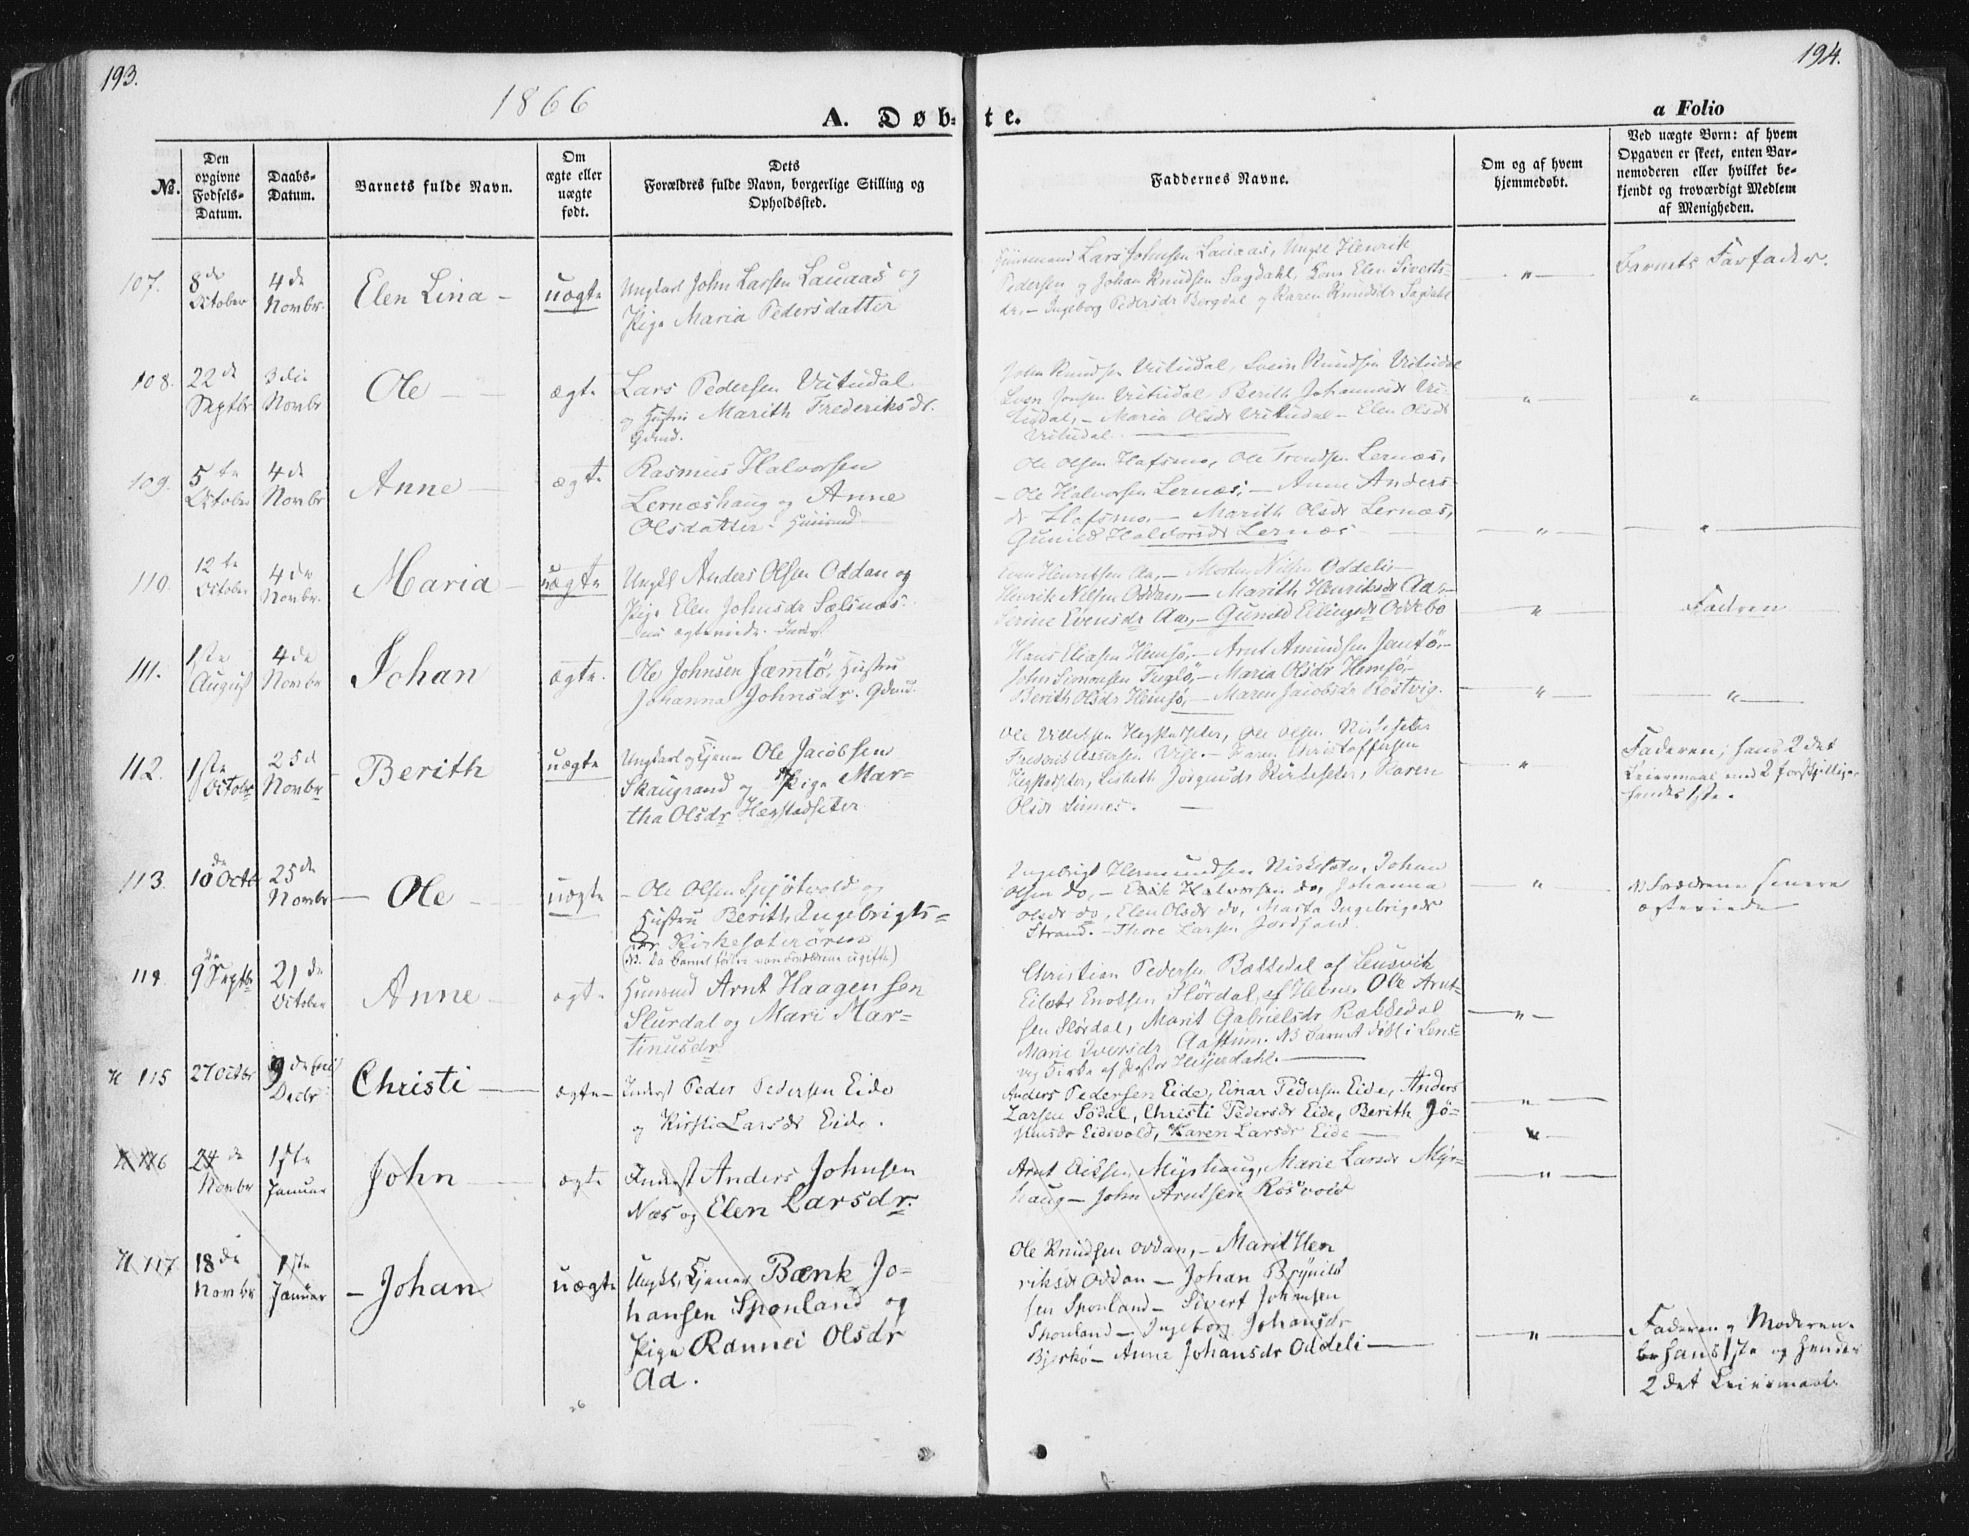 193.
194.
1866
A. Døbte.
a Folio
No.
Den opgivne Fødsels-Datum.
Daabs-Datum.
Barnets fulde Navn.
Om ægte eller uægte født.
Dets Forældres fulde Navn, borgerlige Stilling og Opholdssted.
Faddernes Navne.
Om og af hvem hjemmedøbt.
Ved uægte Børn: af hvem Opgaven er skeet, enten Barnemoderen eller hvilket bekjendt og troværdigt Medlem af Menigheden.
107.
8de October
4de Novbr.
Elen Lina
uægte
Ungkarl John Larsen Lauaas og
Pige Maria Pedersdatter
Lars Johnsen Lauaas, Henrik
Pedersen og Johan Knudsen Sagdahl, Elen Siverts-
dr. - Ingeborg Pedersdr Bergdal og Karen Knudsdr Sagdahl
"
Barnets Farfader.
108.
22de Septbr
3die Novbr
Ole
ægte
Lars Pedersen Vutudal
og Hustru Marith Frederiksdr.
Gdmd.
John Knudsen Vutudal, Svein Knudsen Vutudal
Sven Jonsen Vutudal, Berith Johannesdr Vu-
tudal, - Maria Olsdr Vutudal - Elen Olsdr
Vutudal
"
"
109.
5te October
4de Novbr
Anne
ægte
Rasmus Halvorsen
Lernæshaug og Anne
Olsdatter - Huusmd
Ole Olsen Hafsmo, Ole Trondsen Lernæs,
- Ole Halvorsen Lernæs, - Anne Anders-
dr Hofsmo, - Marith Olsdr Lernæs,
Gunild Halvorsdr Lernæs
"
"
110.
12te October
4de Novbr.
Maria
uægte
Ungkl Anders Olsen Oddan og
Pige Elen Johnsdr Sælsnæs.
nu ægteviede. Inderst
Even Henriksen Aa, - Morten Nilsen Oddeli -
Henrik Nilsen Oddan, - Marith Henriksdr Aa, -
Serine Evensdr Aa, - Gunild Ellingsdr Oddebo
"
Fadren
111.
1ste August
4de Novbr
Johan
ægte.
Ole Johnsen Jæmtø, Hustru
Johanna Johnsdr. Gdmd.
Hans Eliasen Hemsø, - Arnt Amundsen Jantö, -
John Simonsen Fuglø, - Maria Olsdr Hemsø, -
Berith Olsdr Hemsø, - Maren Jacobsdr Röstvig.
"
"
112.
1ste Octobr
25d Novbr
Berith
uægte
Ungkarl og Tjener Ole Jacobsen
Skrugrand og Pige Mar-
tha Olsdr Hægstadsæter
Ole Hegstadsæter, Ole Olsen Kirksæter
Frederik Assersen Vige - Karen Christoffersen
Hegstadsæter, Lisbeth Jörgensdr Kirksæter, Karen
Olsdr Sinnes. -
"
Faderen, hans 2det
Leiermaal med 2 forskjellige
hendes 1ste.
113.
10de Octbr
25de Novbr
Ole
uægte
- Ole Olsen Spjøtvold og
Hustru Berith Ingebrigts-
dr Kirkesæterøren
(NB. Da Barnet fødtes vare Forældrene ugifte)
Ingebrigt Hermundsen Kirkesæter, Johan
Olsen do, - Erik Halvorsen do, Johanna
Olsdr do, Elen Olsdr do, Marta Ingebrigtsdr
Strand. - Thore Larsen
"
Forældrene senere
ægteviede
114.
9de Septbr
21de October
Anne
ægte
Huusmd Arnt Haagensen
Slurdal og Mari Mar-
tinusdr
Christian Pedersen Bækkedal af Lensvik
Eilert Enoksen Slördal, af Hevne, Ole Arnt-
sen Slördal, Marit Gabrielsdr Bækkedal
Marie Iversdr Aastum. NB Barnet döbt i Lens-
vig Kirke af Pastor Heijerdahl.
"
H 115
27 Octbr
9de Decbr
Christi
ægte
Inderst Peder Pedersen Eide
og Kirsti Larsdr Eide.
Anders Pedersen Eide, Einar Pedersen Eide, Anders
Larsen Södal, Christi Pedersdr Eide, Berith Jö-
hnsdr Eidsvold, Karen Larsdr Eide
"
"
H 116
24de Novbr
1ste Januar
John
ægte
Inderst Anders Johnsen
Næs og Elen Larsdr.
Arnt Myrhaug, Marie Larsdr Myr-
haug - John Arntsen Rosvold
"
H 117
18de Novbr
1ste Januar
Johan
uægte
Ungkl, Tjener Bænk Jo-
hansen Sponland og
Pige Rannei Olsdr
Aa.
Ole Knudsen Oddan, - Marit Hen
riksdr Oddan - Johan Brynild
sen Sponland - Sivert Johansen
Sponland - Ingeborg Johansdr
Bjerkø - Anne Johansdr Oddeli
"
Faderen og Moderen.
hans 1ste og hendes
2det Leiermaal.